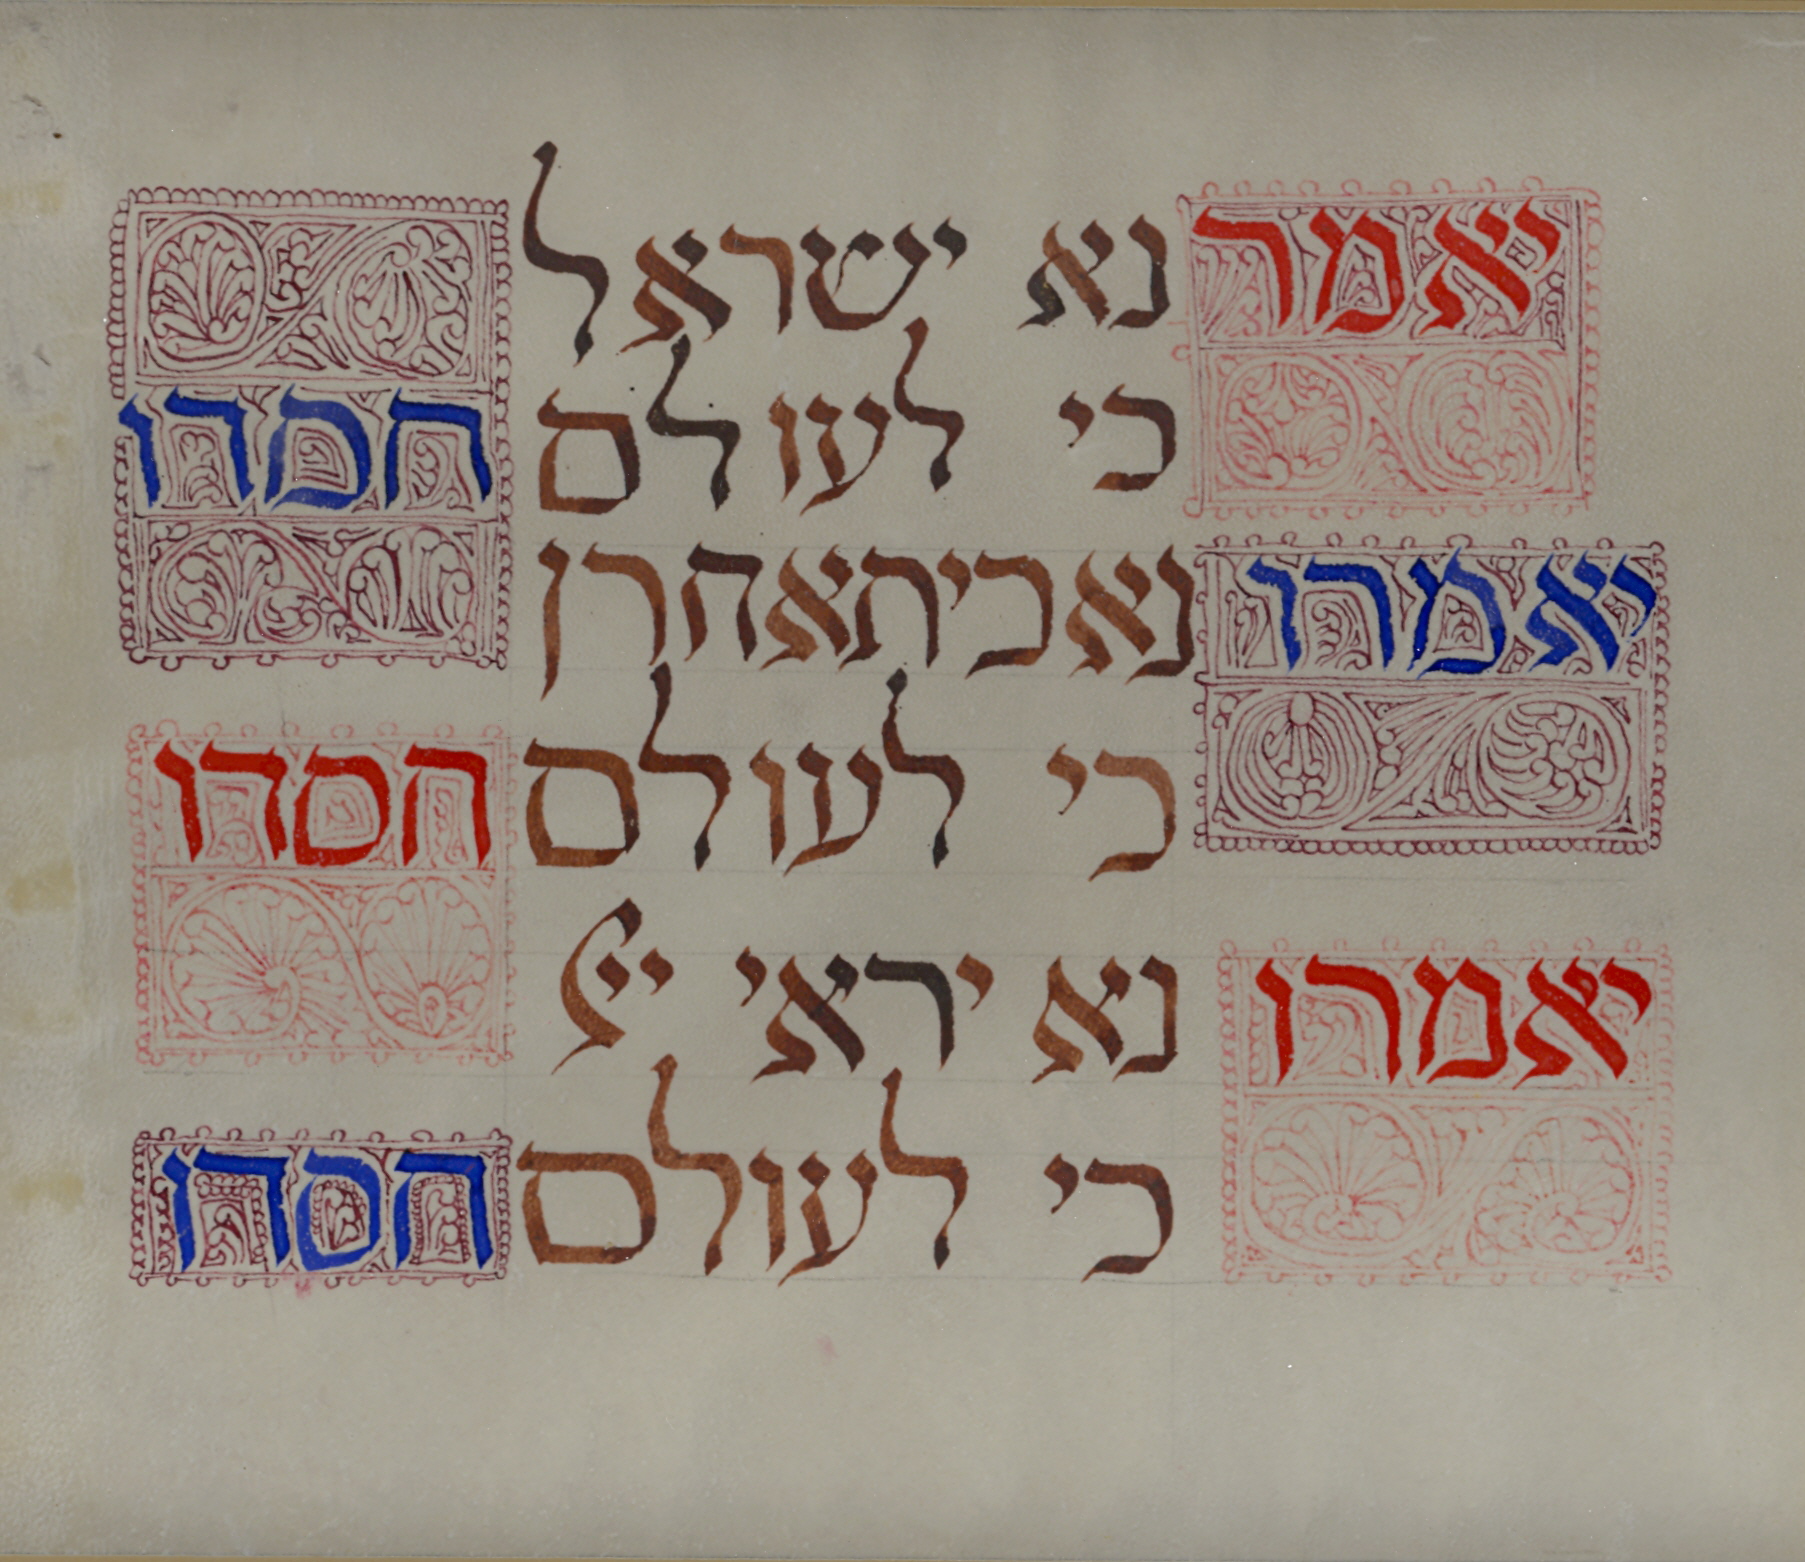 יאמר נא ישראל
כי לעולם חסדו
יאמרו נא בית אהרן
כי לעולם חסדו
יאמרו נא יראי ייי
כי לעולם חסדו